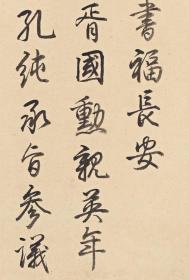 書福長安
胥國勳親英年
孔純承旨參議